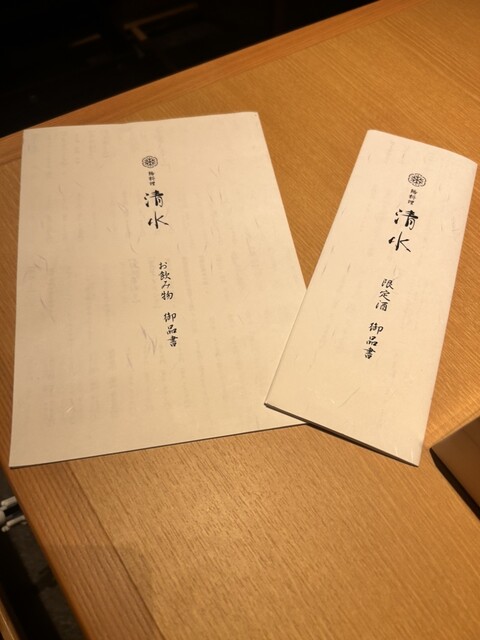 料理
清水
お飲み物 御品書
料理
清水
限定酒 御品書